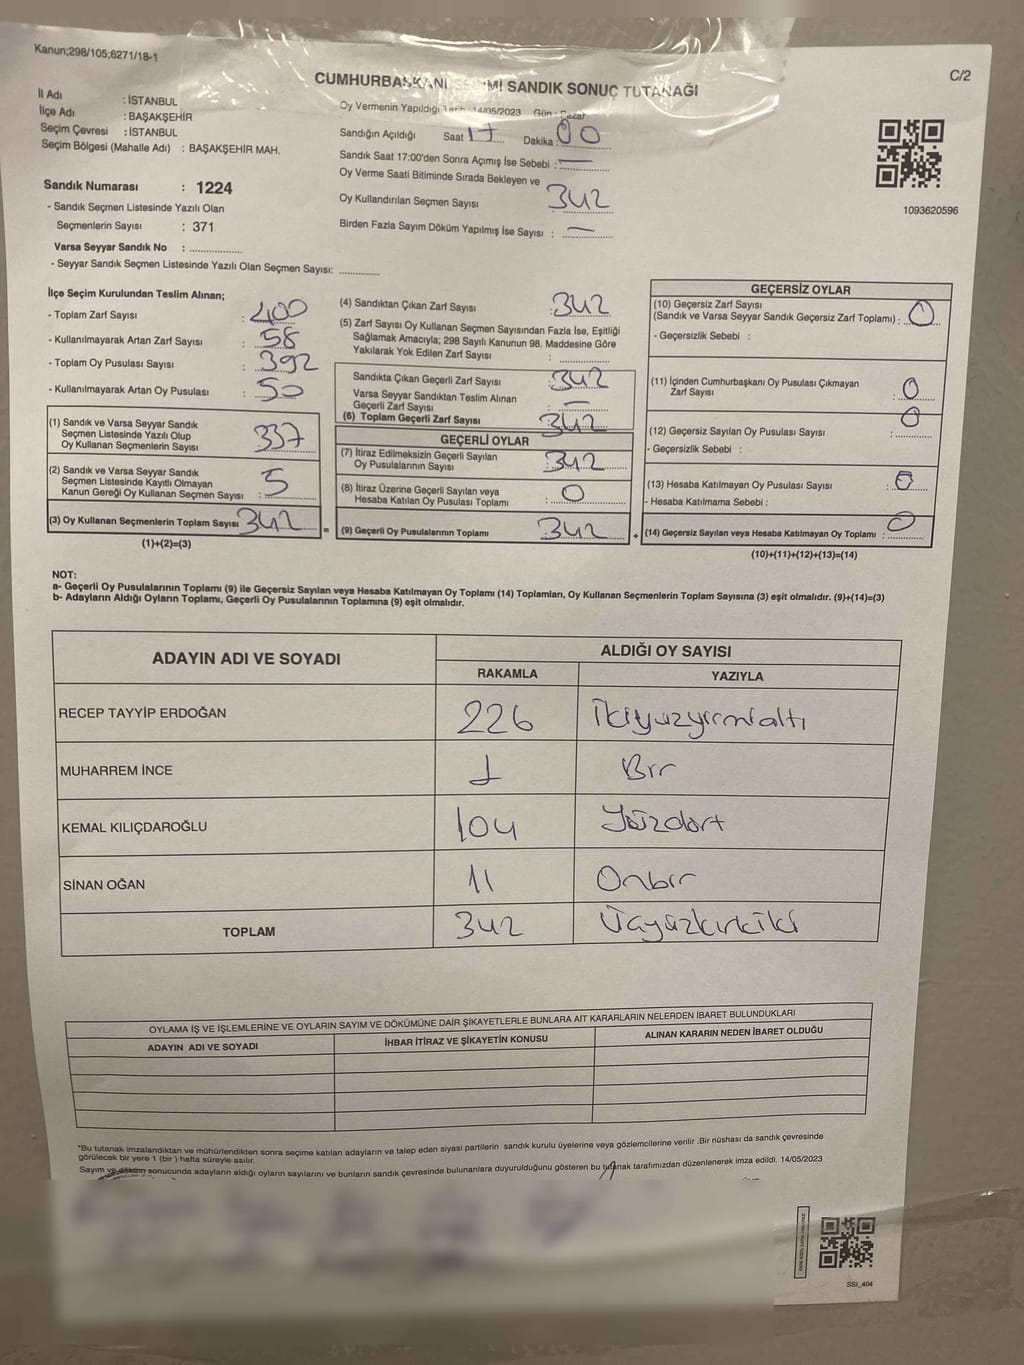 Kanun;298/105;6271/18-1
C/2
CUMHURBAŞKANI SANDIK SONUÇ TUTANAĞI
İl Adı : İSTANBUL
İlçe Adı : BAŞAKŞEHİR
Seçim Çevresi : İSTANBUL
Seçim Bölgesi (Mahalle Adı) : BAŞAKŞEHİR MAH.
Sandık Numarası : 1224
- Sandık Seçmen Listesinde Yazılı Olan
Seçmenlerin Sayısı : 371
Varsa Seyyar Sandık No :
- Seyyar Sandık Seçmen Listesinde Yazılı Olan Seçmen Sayısı:
Oy Vermenin Yapıldığı 14/05/2023 Gün : Pazar
Sandığın Açıldığı Saat 17 Dakika : 00
Sandık Saat 17:00'den Sonra Açımış İse Sebebi : —
Oy Verme Saati Bitiminde Sırada Bekleyen ve
Oy Kullandırılan Seçmen Sayısı 342
Birden Fazla Sayım Döküm Yapılmış İse Sayısı : —
1093620596
İlçe Seçim Kurulundan Teslim Alınan;
- Toplam Zarf Sayısı : 400
- Kullanılmayarak Artan Zarf Sayısı : 58
- Toplam Oy Pusulası Sayısı : 392
- Kullanılmayarak Artan Oy Pusulası : 50
(1) Sandık ve Varsa Seyyar Sandık
Seçmen Listesinde Yazılı Olup
Oy Kullanan Seçmenlerin Sayısı 337
(2) Sandık ve Varsa Seyyar Sandık
Seçmen Listesinde Kayıtlı Olmayan
Kanun Gereği Oy Kullanan Seçmen Sayısı : 5
(3) Oy Kullanan Seçmenlerin Toplam Sayısı 342 =
(1)+(2)=(3)
(4) Sandıktan Çıkan Zarf Sayısı : 342
(5) Zarf Sayısı Oy Kullanan Seçmen Sayısından Fazla İse, Eşitliği
Sağlamak Amacıyla; 298 Sayılı Kanunun 98. Maddesine Göre
Yakılarak Yok Edilen Zarf Sayısı :
Sandıkta Çıkan Geçerli Zarf Sayısı : 342
Varsa Seyyar Sandıktan Teslim Alınan
Geçerli Zarf Sayısı : —
(6) Toplam Geçerli Zarf Sayısı 342
GEÇERLİ OYLAR
(7) İtiraz Edilmeksizin Geçerli Sayılan
Oy Pusulalarının Sayısı : 342
(8) İtiraz Üzerine Geçerli Sayılan veya
Hesaba Katılan Oy Pusulası Toplamı : 0
(9) Geçerli Oy Pusulalarının Toplamı 342 +
GEÇERSİZ OYLAR
(10) Geçersiz Zarf Sayısı
(Sandık ve Varsa Seyyar Sandık Geçersiz Zarf Toplamı) : 0
- Geçersizlik Sebebi :
(11) İçinden Cumhurbaşkanı Oy Pusulası Çıkmayan
Zarf Sayısı : 0
(12) Geçersiz Sayılan Oy Pusulası Sayısı : 0
- Geçersizlik Sebebi :
(13) Hesaba Katılmayan Oy Pusulası Sayısı : 0
- Hesaba Katılmama Sebebi :
(14) Geçersiz Sayılan veya Hesaba Katılmayan Oy Toplamı : 0
(10)+(11)+(12)+(13)=(14)
NOT:
a- Geçerli Oy Pusulalarının Toplamı (9) ile Geçersiz Sayılan veya Hesaba Katılmayan Oy Toplamı (14) Toplamları, Oy Kullanan Seçmenlerin Toplam Sayısına (3) eşit olmalıdır. (9)+(14)=(3)
b- Adayların Aldığı Oyların Toplamı, Geçerli Oy Pusulalarının Toplamına (9) eşit olmalıdır.
ADAYIN ADI VE SOYADI ALDIĞI OY SAYISI
RAKAMLA YAZIYLA
RECEP TAYYİP ERDOĞAN 226 İkiyüzyirmialtı
MUHARREM İNCE 1 Bir
KEMAL KILIÇDAROĞLU 104 Yüzdört
SİNAN OĞAN 11 Onbir
TOPLAM 342 Üçyüzkırkiki
OYLAMA İŞ VE İŞLEMLERİNE VE OYLARIN SAYIM VE DÖKÜMÜNE DAİR ŞİKAYETLERLE BUNLARA AİT KARARLARIN NELERDEN İBARET BULUNDUKLARI
ADAYIN ADI VE SOYADI İHBAR İTİRAZ VE ŞİKAYETİN KONUSU ALINAN KARARIN NEDEN İBARET OLDUĞU
*Bu tutanak imzalandıktan ve mühürlendikten sonra seçime katılan adayların ve talep eden siyasi partilerin sandık kurulu üyelerine veya gözlemcilerine verilir .Bir nüshası da sandık çevresinde
görülecek bir yere 1 (bir ) hafta süreyle asılır.
Sayım ve döküm sonucunda adayların aldığı oyların sayılarını ve bunların sandık çevresinde bulunanlara duyurulduğunu gösteren bu tutanak tarafımızdan düzenlenerek imza edildi. 14/05/2023
SSI_404